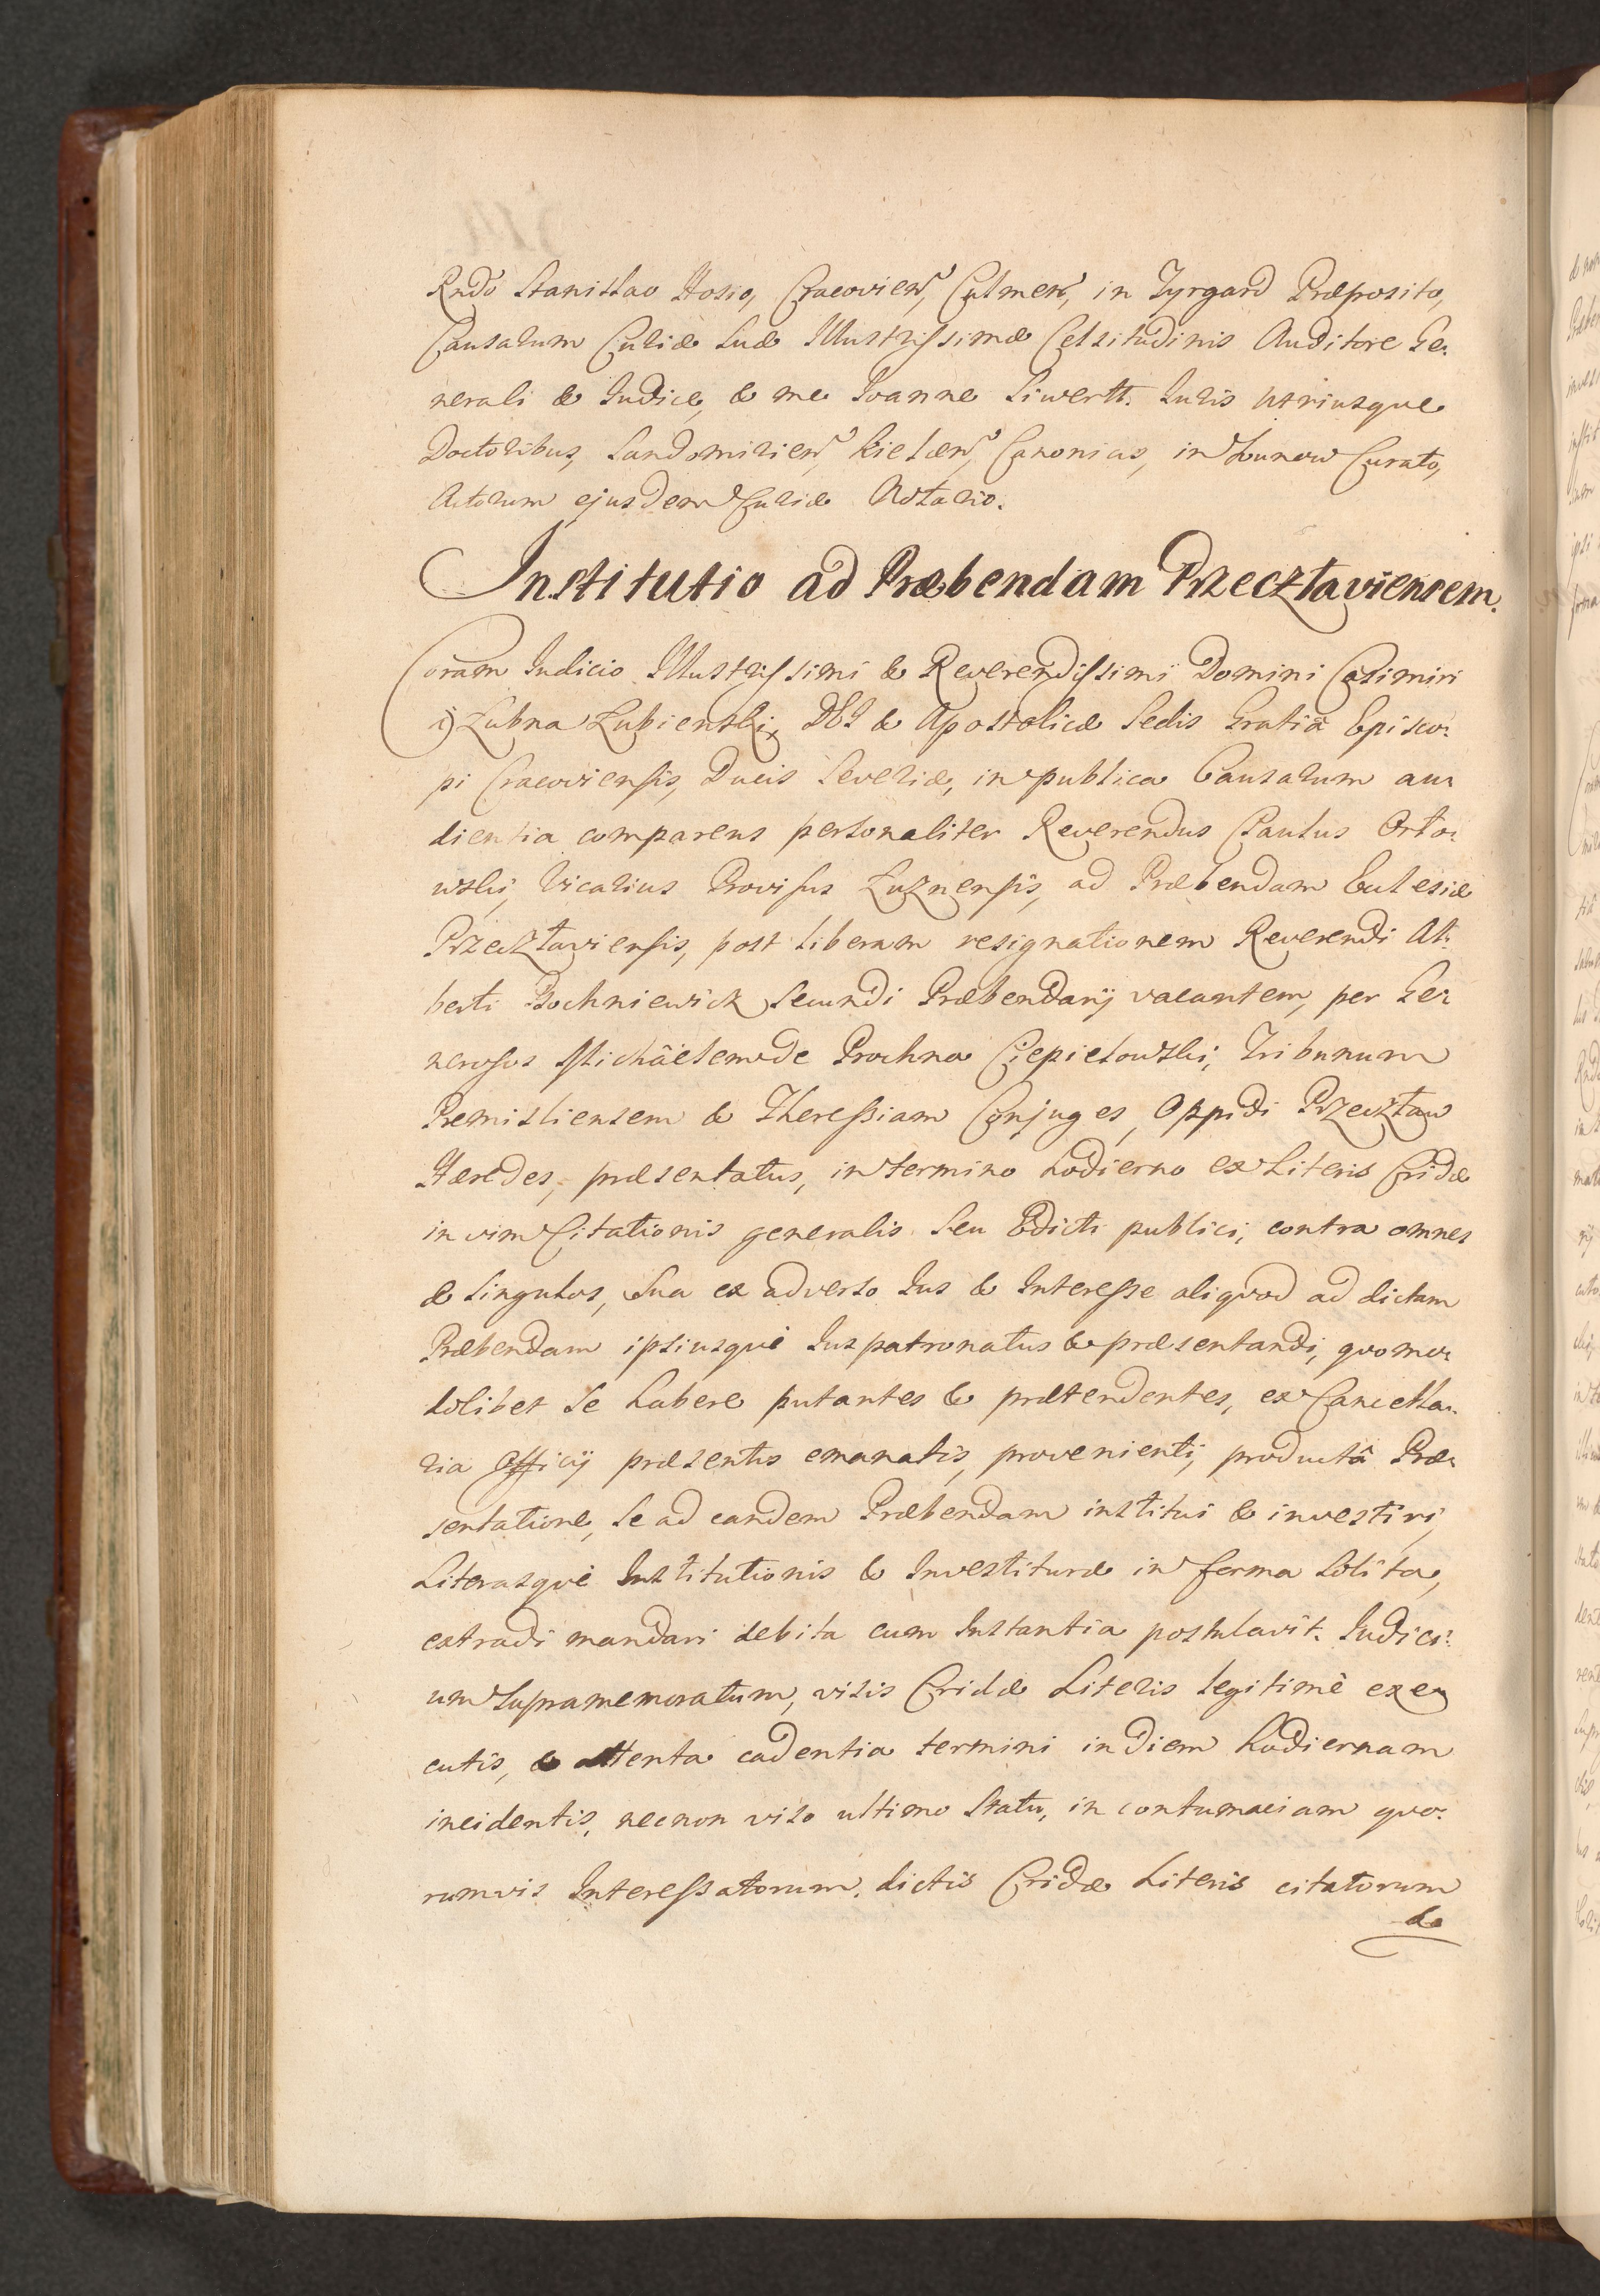 Rndo Stanislao Hosio, Cracovien, Culmen, in Tyrgard Præposito,
Causarum Curiæ Suæ Illustrissimæ Celsitudinis Auditore Ge-
nerali & Iudice, & me Ioanne Siwertt. Iuris Utriusque
Doctoribus, Sandomirien, Kielcen, Canonicis, in Lunow Curato,
Actorum ejusdem Curiæ Notario.
Institutio ad Præbendam Przecztaviensem.
Coram Iudicio Illustrissimi & Reverendissimi Domini Casimiri
à Łubna Łubienski, DEI & Apostolicæ Sedis Gratiâ Episco-
pi Cracoviensis, Ducis Severiæ, in publica Causarum au-
dientia comparens personaliter Reverendus Paulus Orło-
wski, Vicarius Provisus Łuznensis, ad Præbendam Ecclesiæ
Przecztaviensis, post liberam resignationem Reverendi Al-
berti Bochniewicz Secundi Præbendarij vacantem, per Ge-
nerosos Michäelem de Prochna Ciepielowski, Tribunum
Premisliensem & Theressiam Conjuges, Oppidi Przecztaw
Hæredes, præsentatus, in termino hodierno ex Literis Cridæ
in vim Citationis generalis Seu Edicti publici, contra omnes
& Singulos, Sua ex adverso Ius & Interesse aliquod ad dictam
Præbendam ipsiusquè Iuspatronatus & præsentandi, quomo-
dolibet Se habere putantes & prætendentes, ex Cancella-
ria Officij præsentis emanatis, provenienti, productâ Præ-
sentatione, Se ad eandem Præbendam institui & investiri,
Literasquè Institutionis & Investituræ in forma Solita,
extradi mandari debita cum Instantia postulavit. Iudici-
um Supramemoratum, visis Cridæ Literis legitimè exe-
cutis, & attenta cadentia termini in diem hodiernam
incidentis, necnon viso ultimo Statu, in contumaciam quo-
rumvis Interessatorum, dictis Cridæ Literis citatorum
&